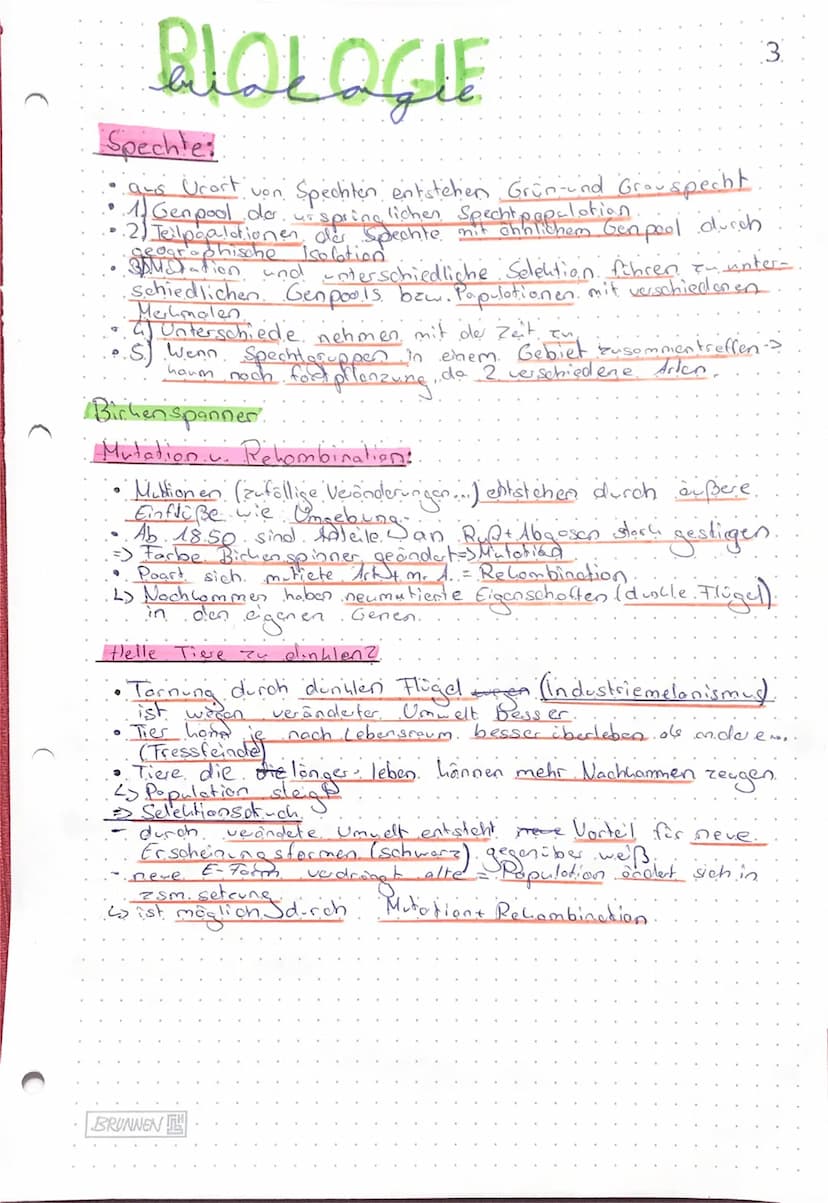 3
BIOLOGIE
biologie
Spechte:
• aus Urart von Spechten entstehen Grün- und Grauspecht
• 1) Genpool der ursprünglichen Spechtpopulation
• 2) Teilpopulationen der Spechte mit ähnlichem Genpool durch
geographische Isolation
• 3) Mutation und unterschiedliche Selektion führen zu unter-
schiedlichen Genpools bzw. Populationen mit verschiedenen
Merkmalen
• 4) Unterschiede nehmen mit der Zeit zu
• 5) Wenn Spechtgruppen in einem Gebiet zusammentreffen ->
kaum noch fortpflanzung, da 2 verschiedene Arten.
Birkenspanner
Mutation u. Rekombination:
• Muttionen (zufällige Veränderungen...) entstehen durch äußere
Einflüße wie Umgebung.
• Ab 1850 sind Anteile an Ruß + Abgasen stark gestigen
=> Farbe Birkenspinner geändert => Mutation
• Paart sich mutiete Art m. = Rekombination
↳ Nachkommen haben neumutierte Eigenschaften (dunkle Flügel)
in den eigenen Genen
Helle Tiere zu dunklen?
• Tarnung durch dunklen Flügel (Industriemelanismus)
ist wegen veränderter Umwelt Besser
• Tier kann je nach Lebensraum besser überleben als andere...
(Fressfeinde)
• Tiere die länger leben können mehr Nachkommen zeugen
↳ Population steigt
=> Selektionsdruck
- durch verändete Umwelt entsteht Vorteil für neue
Erscheinungsformen (schwarz) gegenüber weiß.
- neue E-Form verdrängt alte = Population ändert sich in
zsm. setzung
↳ ist möglich durch Mutation + Rekombination
BRUNNEN